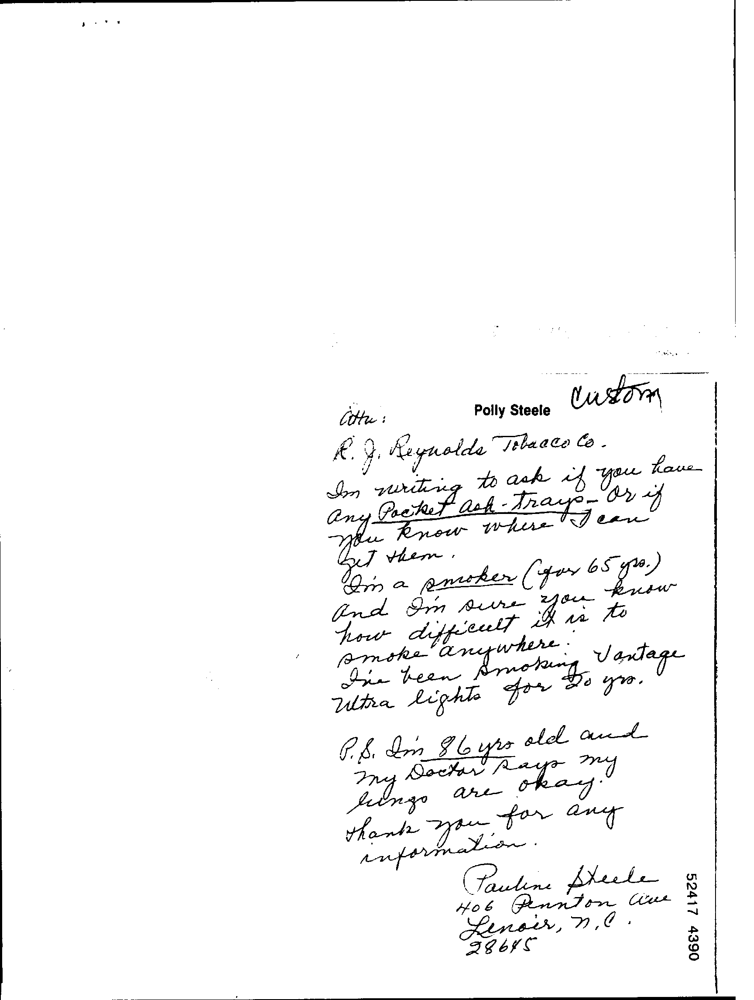 Polly Steele
Custom
Attn:
R. J. Reynolds Tobacco Co.
Im writing to ask if you have
any Pocket ash-trays- Or if
you know where I can
get them.
I'm a smoker (for 65 yrs.)
And I'm sure you know
how difficult it is to
smoke anywhere.
I've been smoking Vantage
Ultra lights for 20 yrs.
P.S. I'm 86 yrs old and
my Doctor says my
lungs are okay.
Thank you for any
information.
Pauline Steele
406 Pennton Ave
Lenoir, N.C.
28645
52417 4390